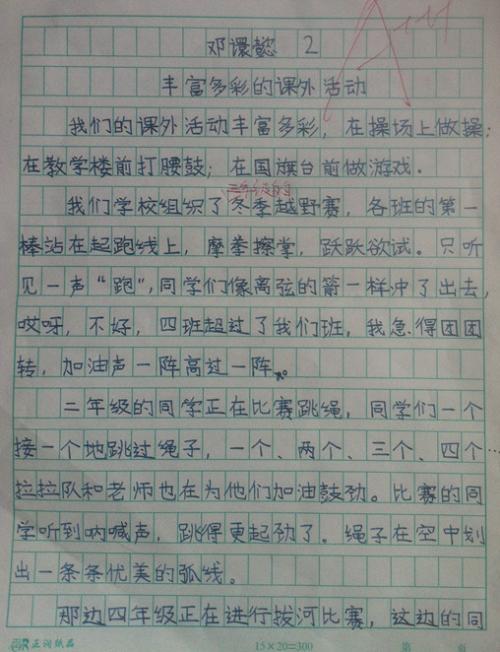 邓 懿 2
丰富多彩的课外活动
我们的课外活动丰富多彩,在操场上做操;
在教学楼前打腰鼓;在国旗台前做游戏.
三年级的
我们学校组织了冬季越野赛,各班的第一
棒站在起跑线上,摩拳擦掌,跃跃欲试。只听
见一声“跑”,同学们像离弦的箭一样冲了出去,
哎呀,不好,四班超过了我们班,我急得团团
转,加油声一阵高过一阵。
二年级的同学正在比赛跳绳,同学们一个
接一个地跳过绳子,一个、两个、三个、四个…
拉拉队和老师也在为他们加油鼓劲。比赛的同
学听到呐喊声,跳得更起劲了。绳子在空中划
出一条条优美的弧线。
那边四年级正在进行拔河比赛,这边的同
正润纸品 15×20=300 第 页